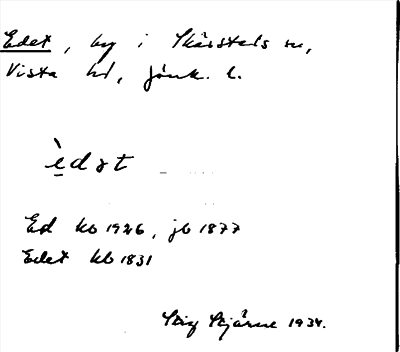 Edet, by i Skärstads sn,
Vista hd, Jönk. l.
èdət
Ed kb 1926, jb 1877
Edet kb 1831
Stig Stjärne 1934.